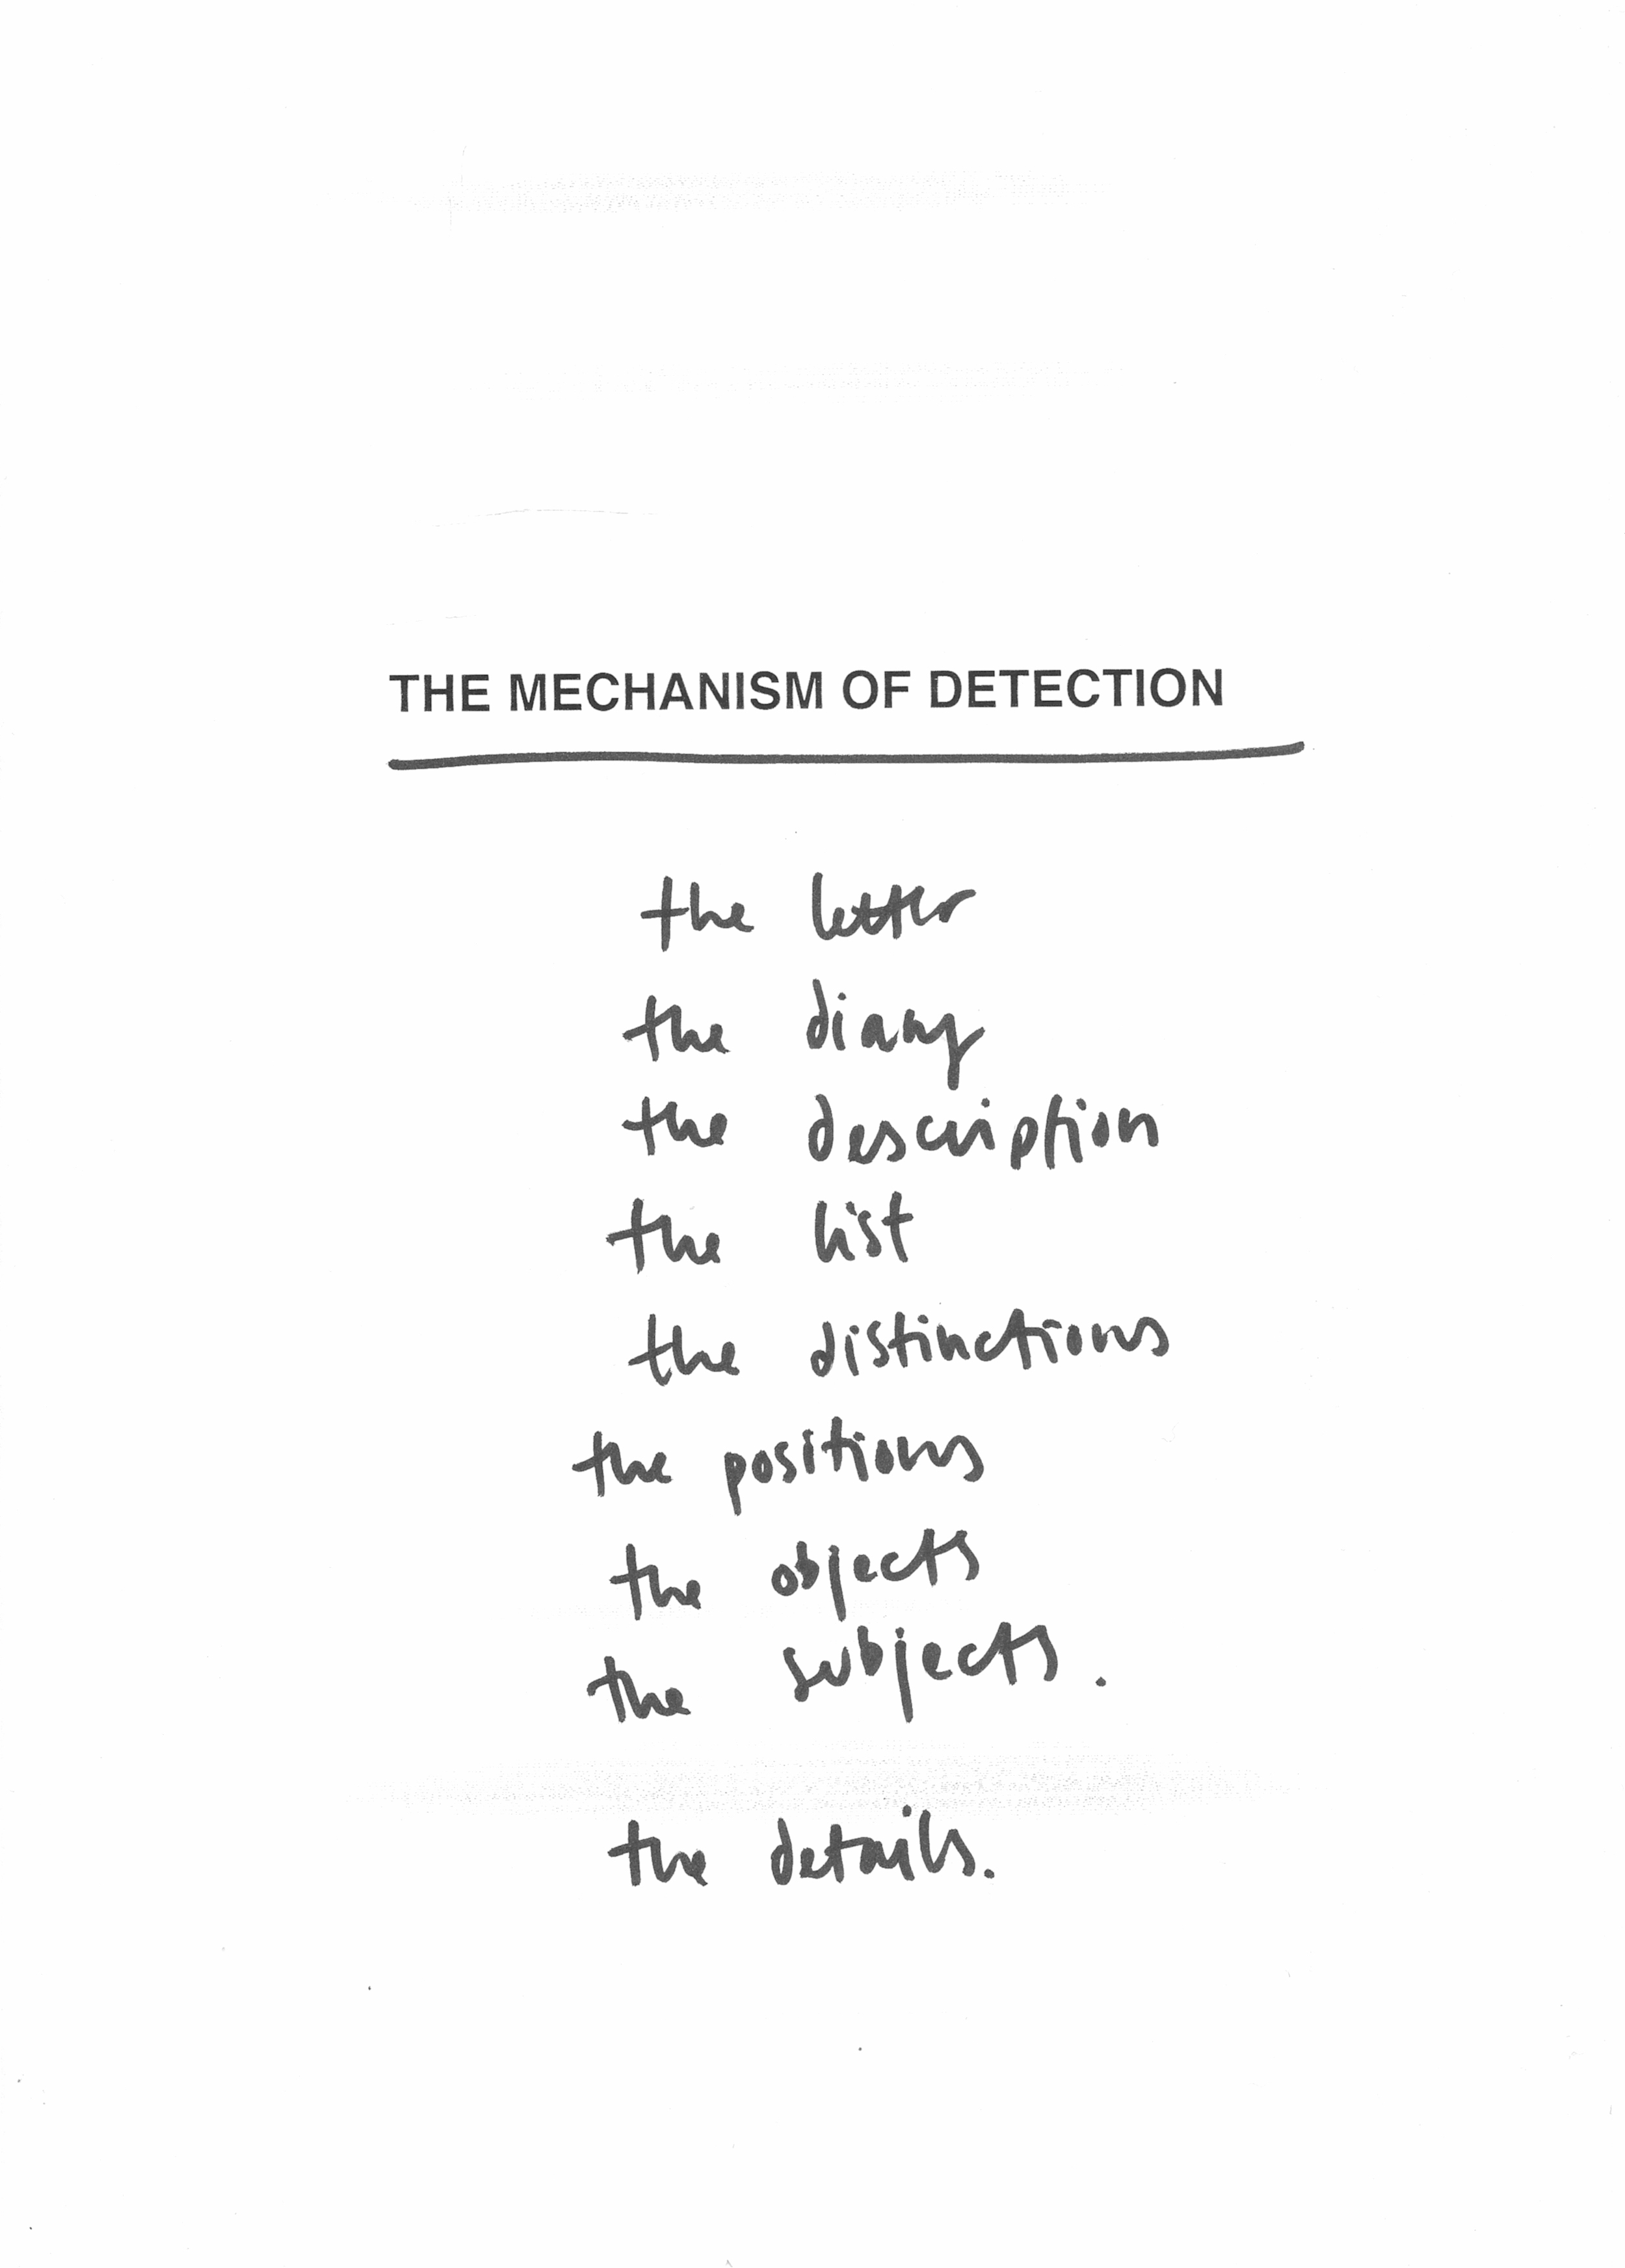 THE MECHANISM OF DETECTION
the letter
the diary
the description
the list
the distinctions
the positions
the objects
the subjects.
the details.